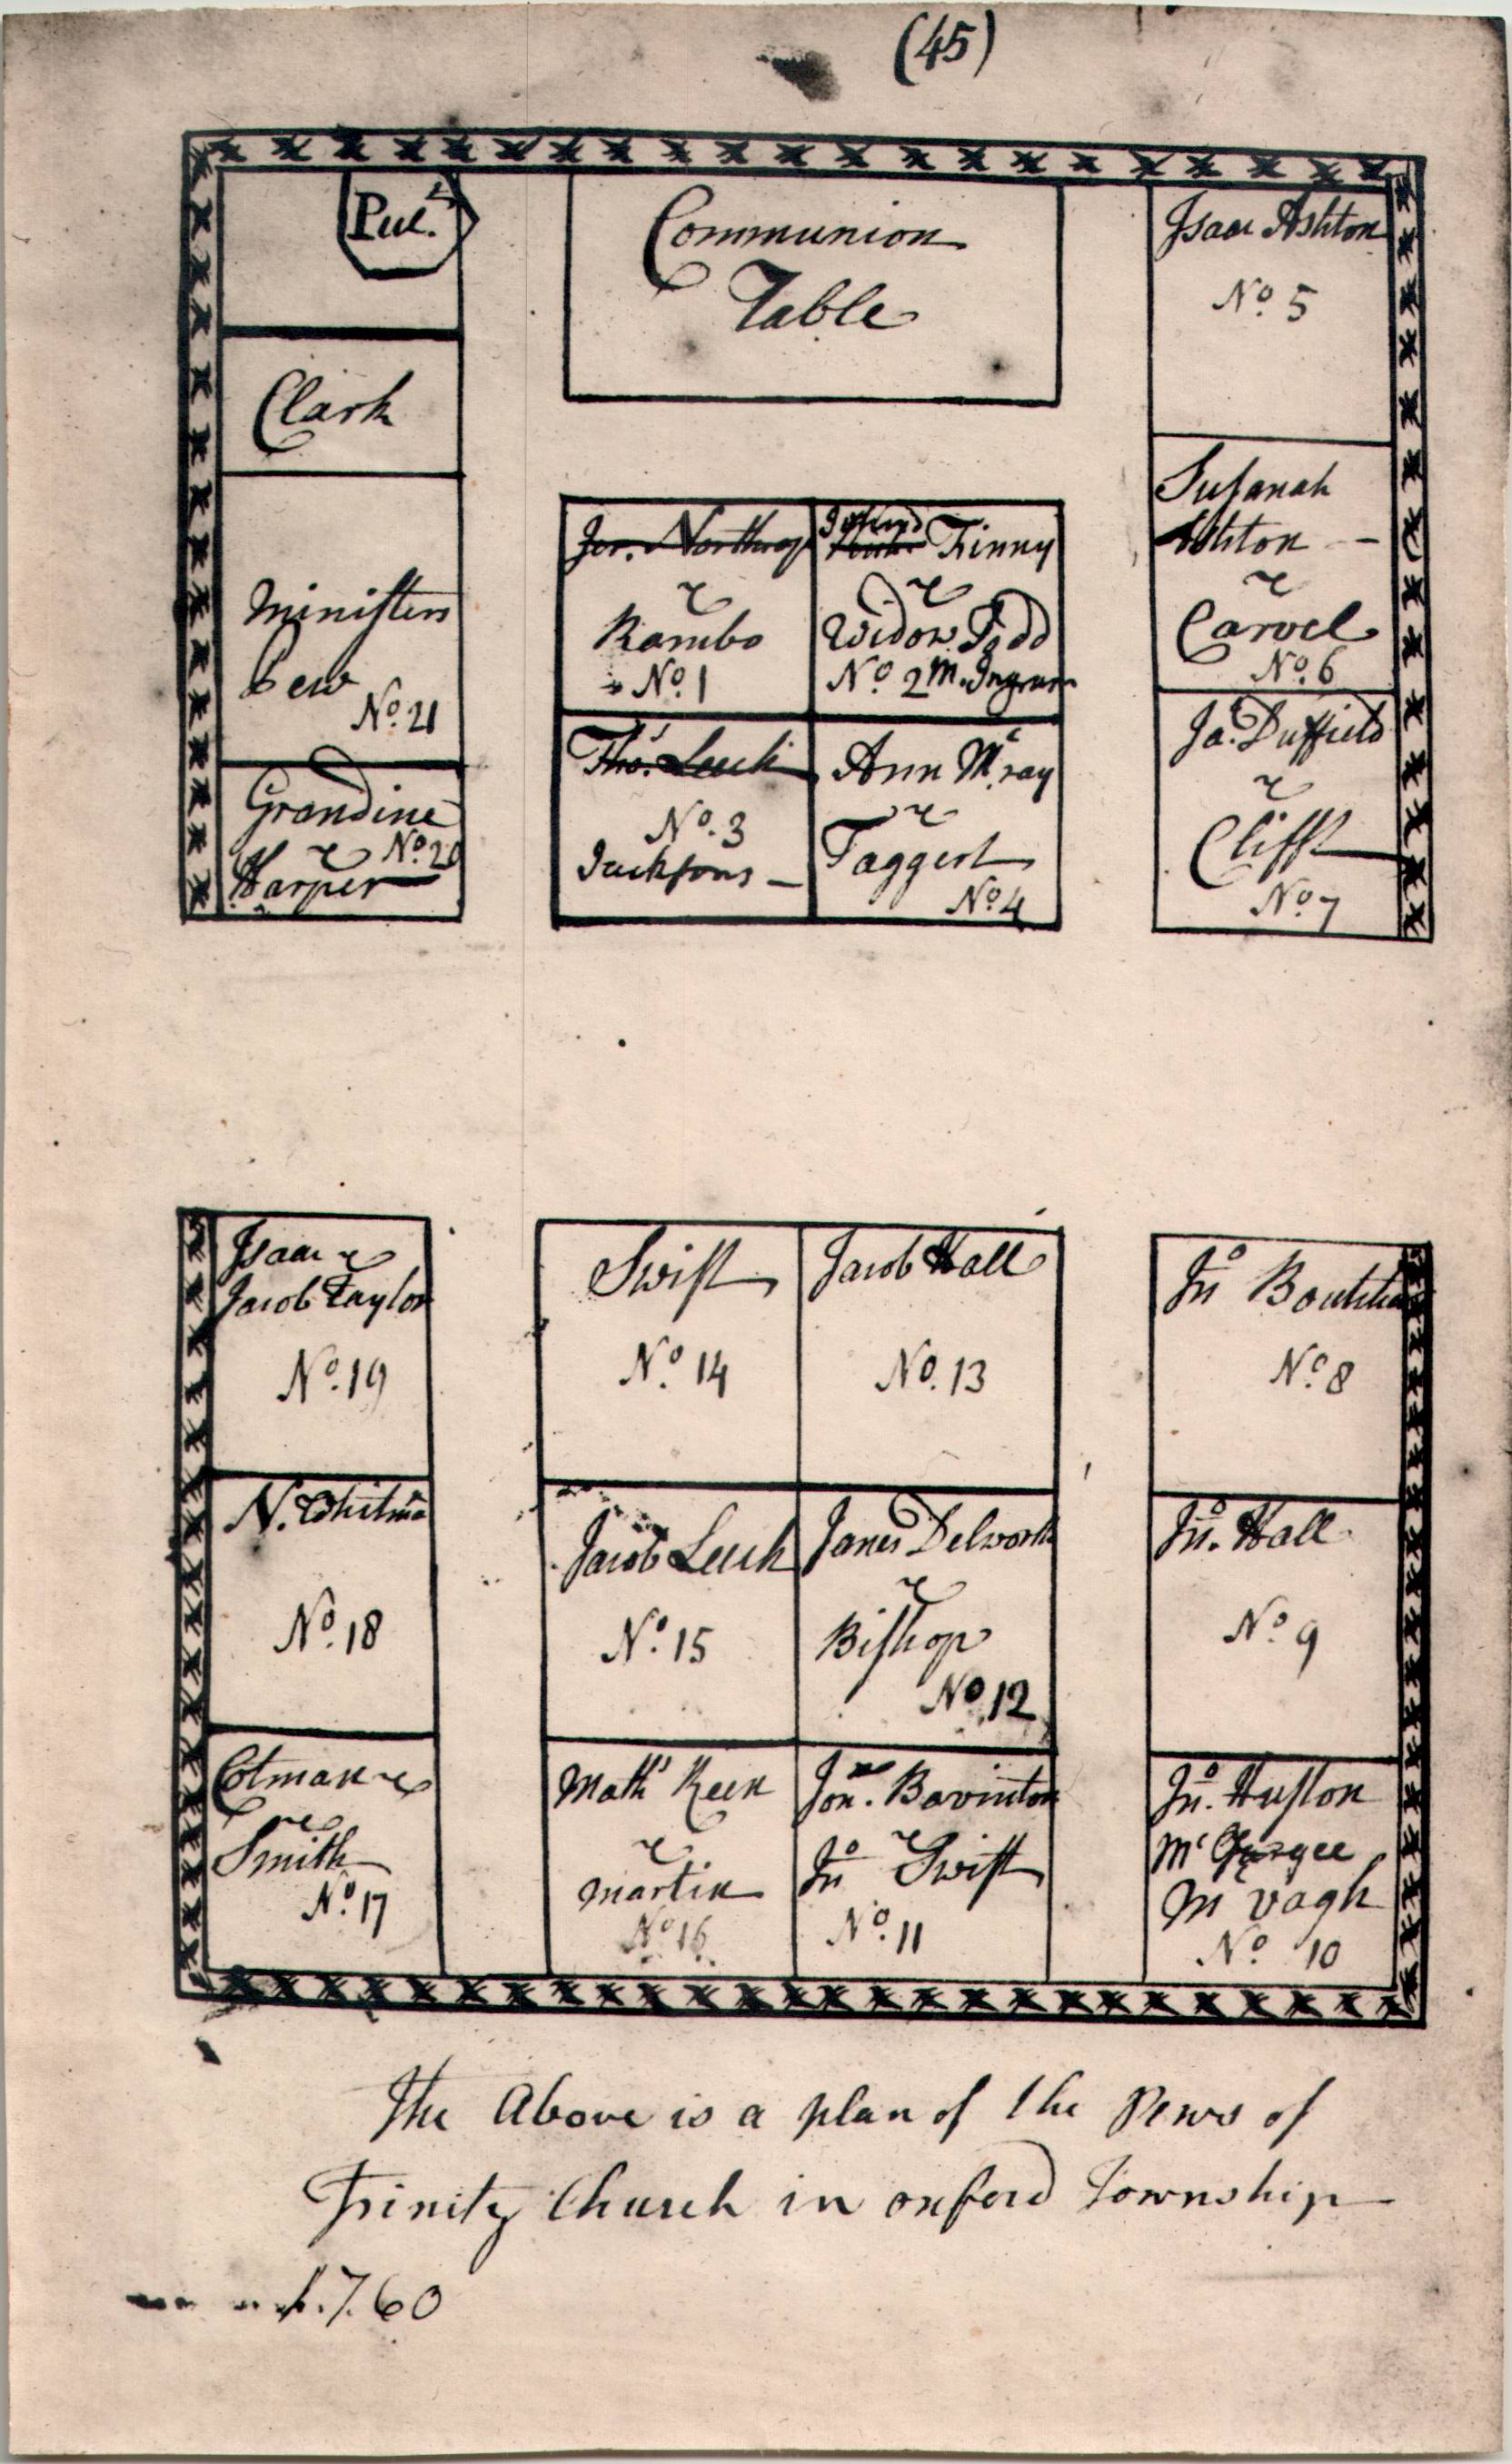 (45)
Pul.t
Communion
Table
Isaac Ashton
No. 5
Clark
Susanah
Ashton
&
Carvel
No. 6
Ministers
Pew
No. 21
Jer. Northrop
&
Rambo
No. 1
Finny
&
Widow Todd
No. 2 M. Ingram
Ja.s Duffield
&
Clifft
No. 7
Grandine
& No. 20
Harper
Tho.s Leech
No. 3
Jacksons
Ann Mc.ray
&
Taggert
No. 4
Isaac &
Jacob Taylor
No. 19
Swift
No. 14
Jacob Hall
No. 13
Jno
No. 8
N. Whitma
No. 18
Jacob Leech
No. 15
James Delworth
&
Bishop
No. 12
Jno. Hall
No. 9
Cotman &
&
Smith
No. 17
Math.s Keen
&
Martin
No. 16
Jon. Bavinton
&
Jno Swift
No. 11
Jno. Huston
Mc
Mc vagh
No. 10
The Above is a plan of the Pews of
Trinity Church in oxford Township
1.7.60